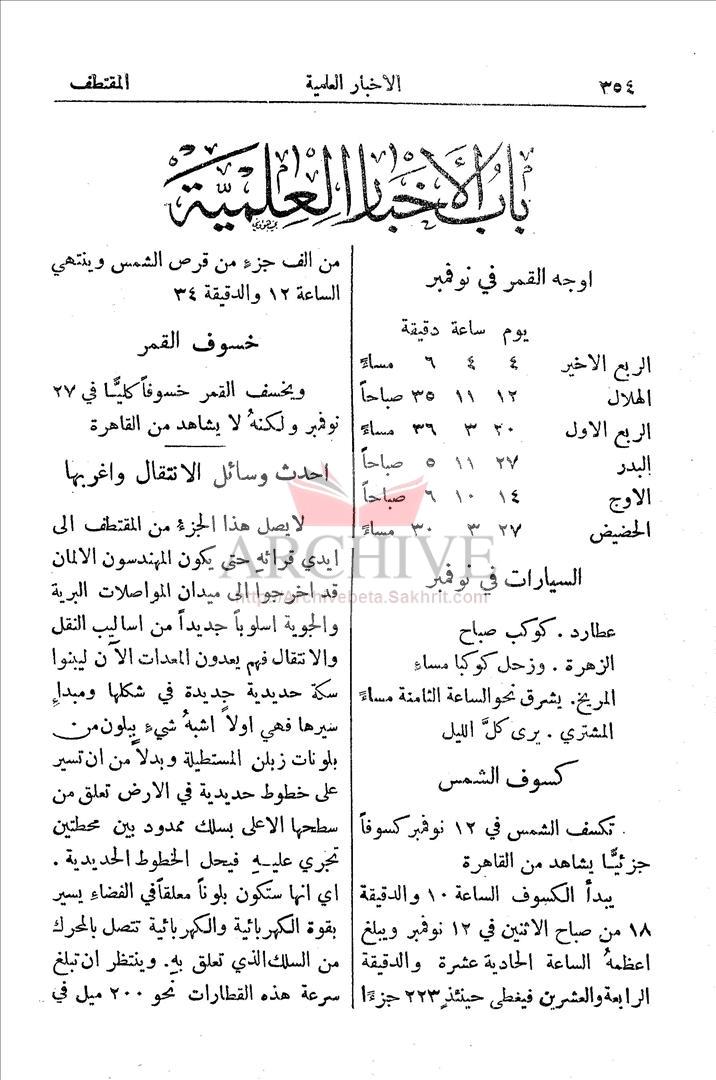 ٣٥٤ الأخبار العلمية المقتطف
باب الأخبار العلمية
اوجه القمر في نوفمبر
يوم ساعة دقيقة
الربع الاخير ٤ ٤ ٦ مساءً
الهلال ١٢ ١١ ٣٥ صباحاً
الربع الاول ٢٠ ٣ ٣٦ مساءً
البدر ٢٧ ١١ ٥ صباحاً
الاوج ١٤ ١٠ ٦ صباحاً
الحضيض ٢٧ ٣ ٣٠ مساءً
السيارات في نوفمبر
عطارد . كوكب صباح
الزهرة . وزحل كوكبا مساء
المريخ. يشرق نحو الساعة الثامنة مساءً
المشتري . يرى كلَّ الليل
كسوف الشمس
تكسف الشمس في ١٢ نوفمبر كسوفاً
جزئيًّا يشاهد من القاهرة
يبدأ الكسوف الساعة ١٠ والدقيقة
١٨ من صباح الاثنين في ١٢ نوفمبر ويبلغ
اعظمهُ الساعة الحادية عشرة والدقيقة
الرابعة والعشرين فيغطى حينئذٍ ٢٢٣ جزءًا
من الف جزء من قرص الشمس وينتهي
الساعة ١٢ والدقيقة ٣٤
خسوف القمر
ويخسف القمر خسوفاً كليًّا في ٢٧
نوفمبر ولكنهُ لا يشاهد من القاهرة
احدث وسائل الانتقال واغربها
لا يصل هذا الجزء من المقتطف الى
ايدي قرائهِ حتى يكون المهندسون الالمان
قد اخرجوا الى ميدان المواصلات البرية
والجوية اسلوباً جديداً من اساليب النقل
والانتقال فهم يعدون المعدات الآن ليبنوا
سكة حديدية جديدة في شكلها ومبداءِ
سيرها فهي اولاً اشبهُ شيءٍ ببلون من
بلونات زبلن المستطيلة وبدلاً من ان تسير
على خطوط حديدية في الارض تعلق من
سطحها الاعلى بسلك ممدود بين محطتين
تجري عليـهِ فيحل الخطوط الحديدية .
اي انها ستكون بلوناً معلقاً في الفضاء يسير
بقوة الكهربائية والكهربائية تتصل بالمحرك
من السلك الذي تعلق بهِ. وينتظر ان تبلغ
سرعة هذه القطارات نحو ٢٠٠ ميل في
ARCHIVE
http://Archivebeta.Sakhrit.com